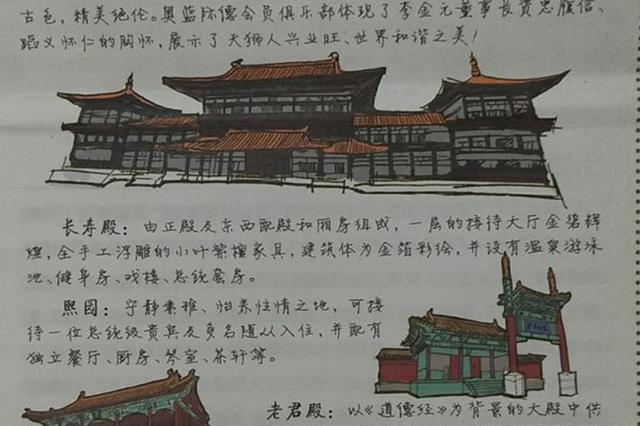 古色，精美绝伦。奥蓝际德会员俱乐部体现了李金元董事长贵忠履信、
蹈义怀仁的胸怀，展示了天狮人兴业旺、世界和谐之美！
长寿殿：由正殿及东西配殿和厢房组成，一层的接待大厅金碧辉
煌，全手工浮雕的小叶紫檀家具，建筑体为金箔彩绘，并设有温泉游泳
池、健身房、戏楼、总统套房。
熙园：宁静素雅、怡养性情之地，可接
待一位总统级贵宾及多名随从入住，并配有
独立餐厅、厨房、琴室、茶轩等。
老君殿：以《道德经》为背景的大殿中供